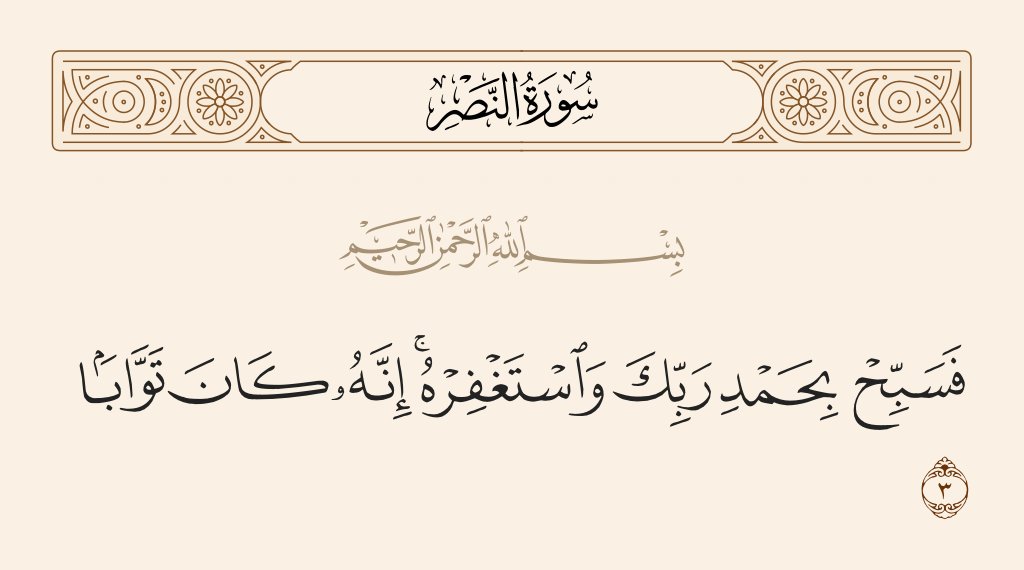 سُورَةُ النَّصْرِ
بِسْمِ ٱللَّهِ ٱلرَّحْمَٰنِ ٱلرَّحِيمِ
فَسَبِّحْ بِحَمْدِ رَبِّكَ وَٱسْتَغْفِرْهُ ۚ إِنَّهُۥ كَانَ تَوَّابَۢا
٣